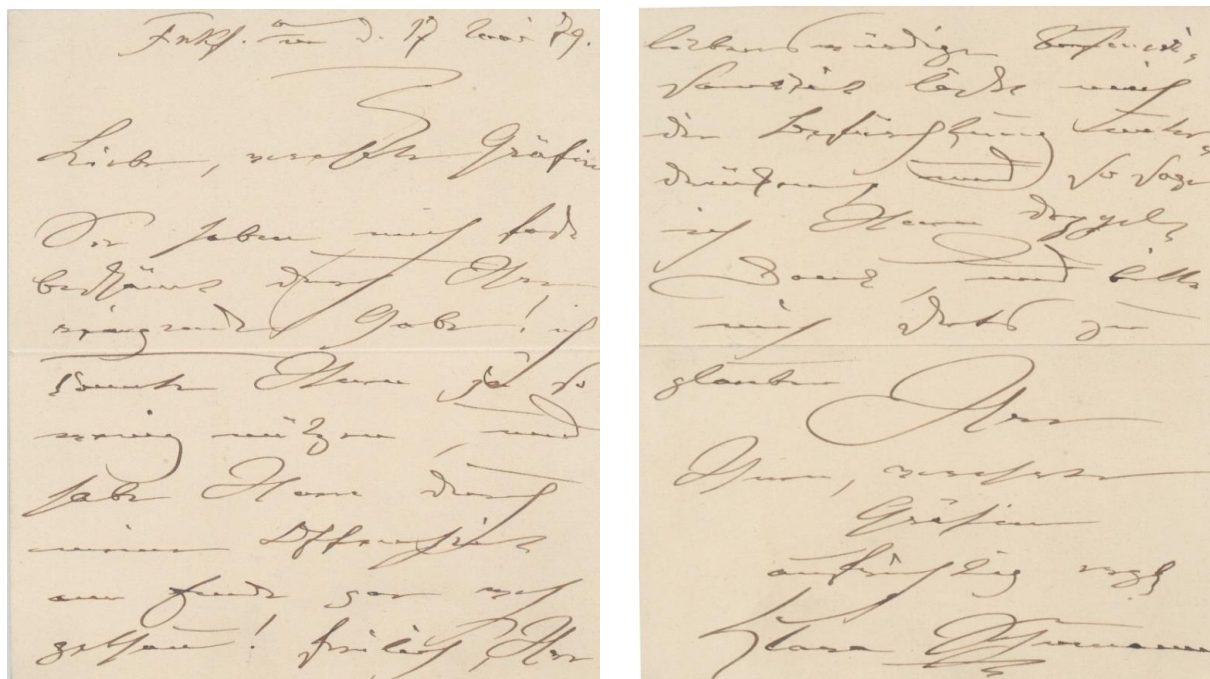 Frkf. a/m d. 17 Mai 79.
Liebe, verehrte Gräfin
Sie haben mich fast
beschämt durch Ihre
reizende Gabe! ich
konnte Ihnen ja so
wenig nützen, und
habe Ihnen durch
meine Offenheit
am Ende gar weh
gethan! freilich, Ihre
liebenswürdige
läßt mich
die Befürchtung unter-
drücken, und so sage
ich Ihnen doppelt
Dank und bitte
mich stets zu
glauben Ihre
Ihnen, verehrte
Gräfin
aufrichtig ergb.
Clara Schumann